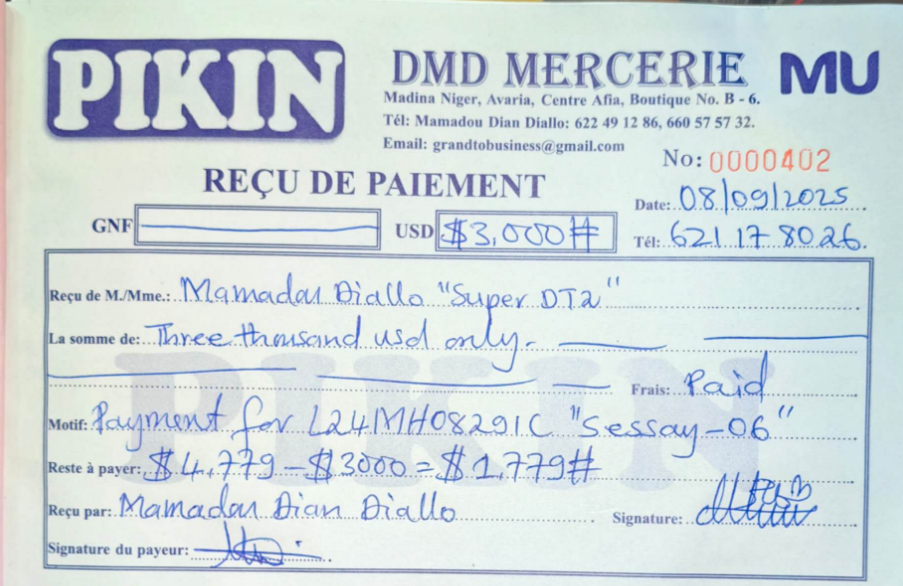 PIKIN
DMD MERCERIE
MU
Madina Niger, Avaria, Centre Afia, Boutique No. B - 6.
Tél: Mamadou Dian Diallo: 622 49 12 86, 660 57 57 32.
Email: grandtobusiness@gmail.com
No: 0000402
REÇU DE PAIEMENT
Date: 08/09/2025
GNF
USD $3,000#
Tél: 621 17 80 26.
Reçu de M./Mme.: Mamadou Diallo "Super DT2"
La somme de: Three thousand usd only.
Frais: Paid
Motif: Payment for L24MH08291C "Sessay-06"
Reste à payer: $4,779 - $3000 = $1,779#
Reçu par: Mamadou Dian Diallo
Signature:
Signature du payeur:
PIKIN